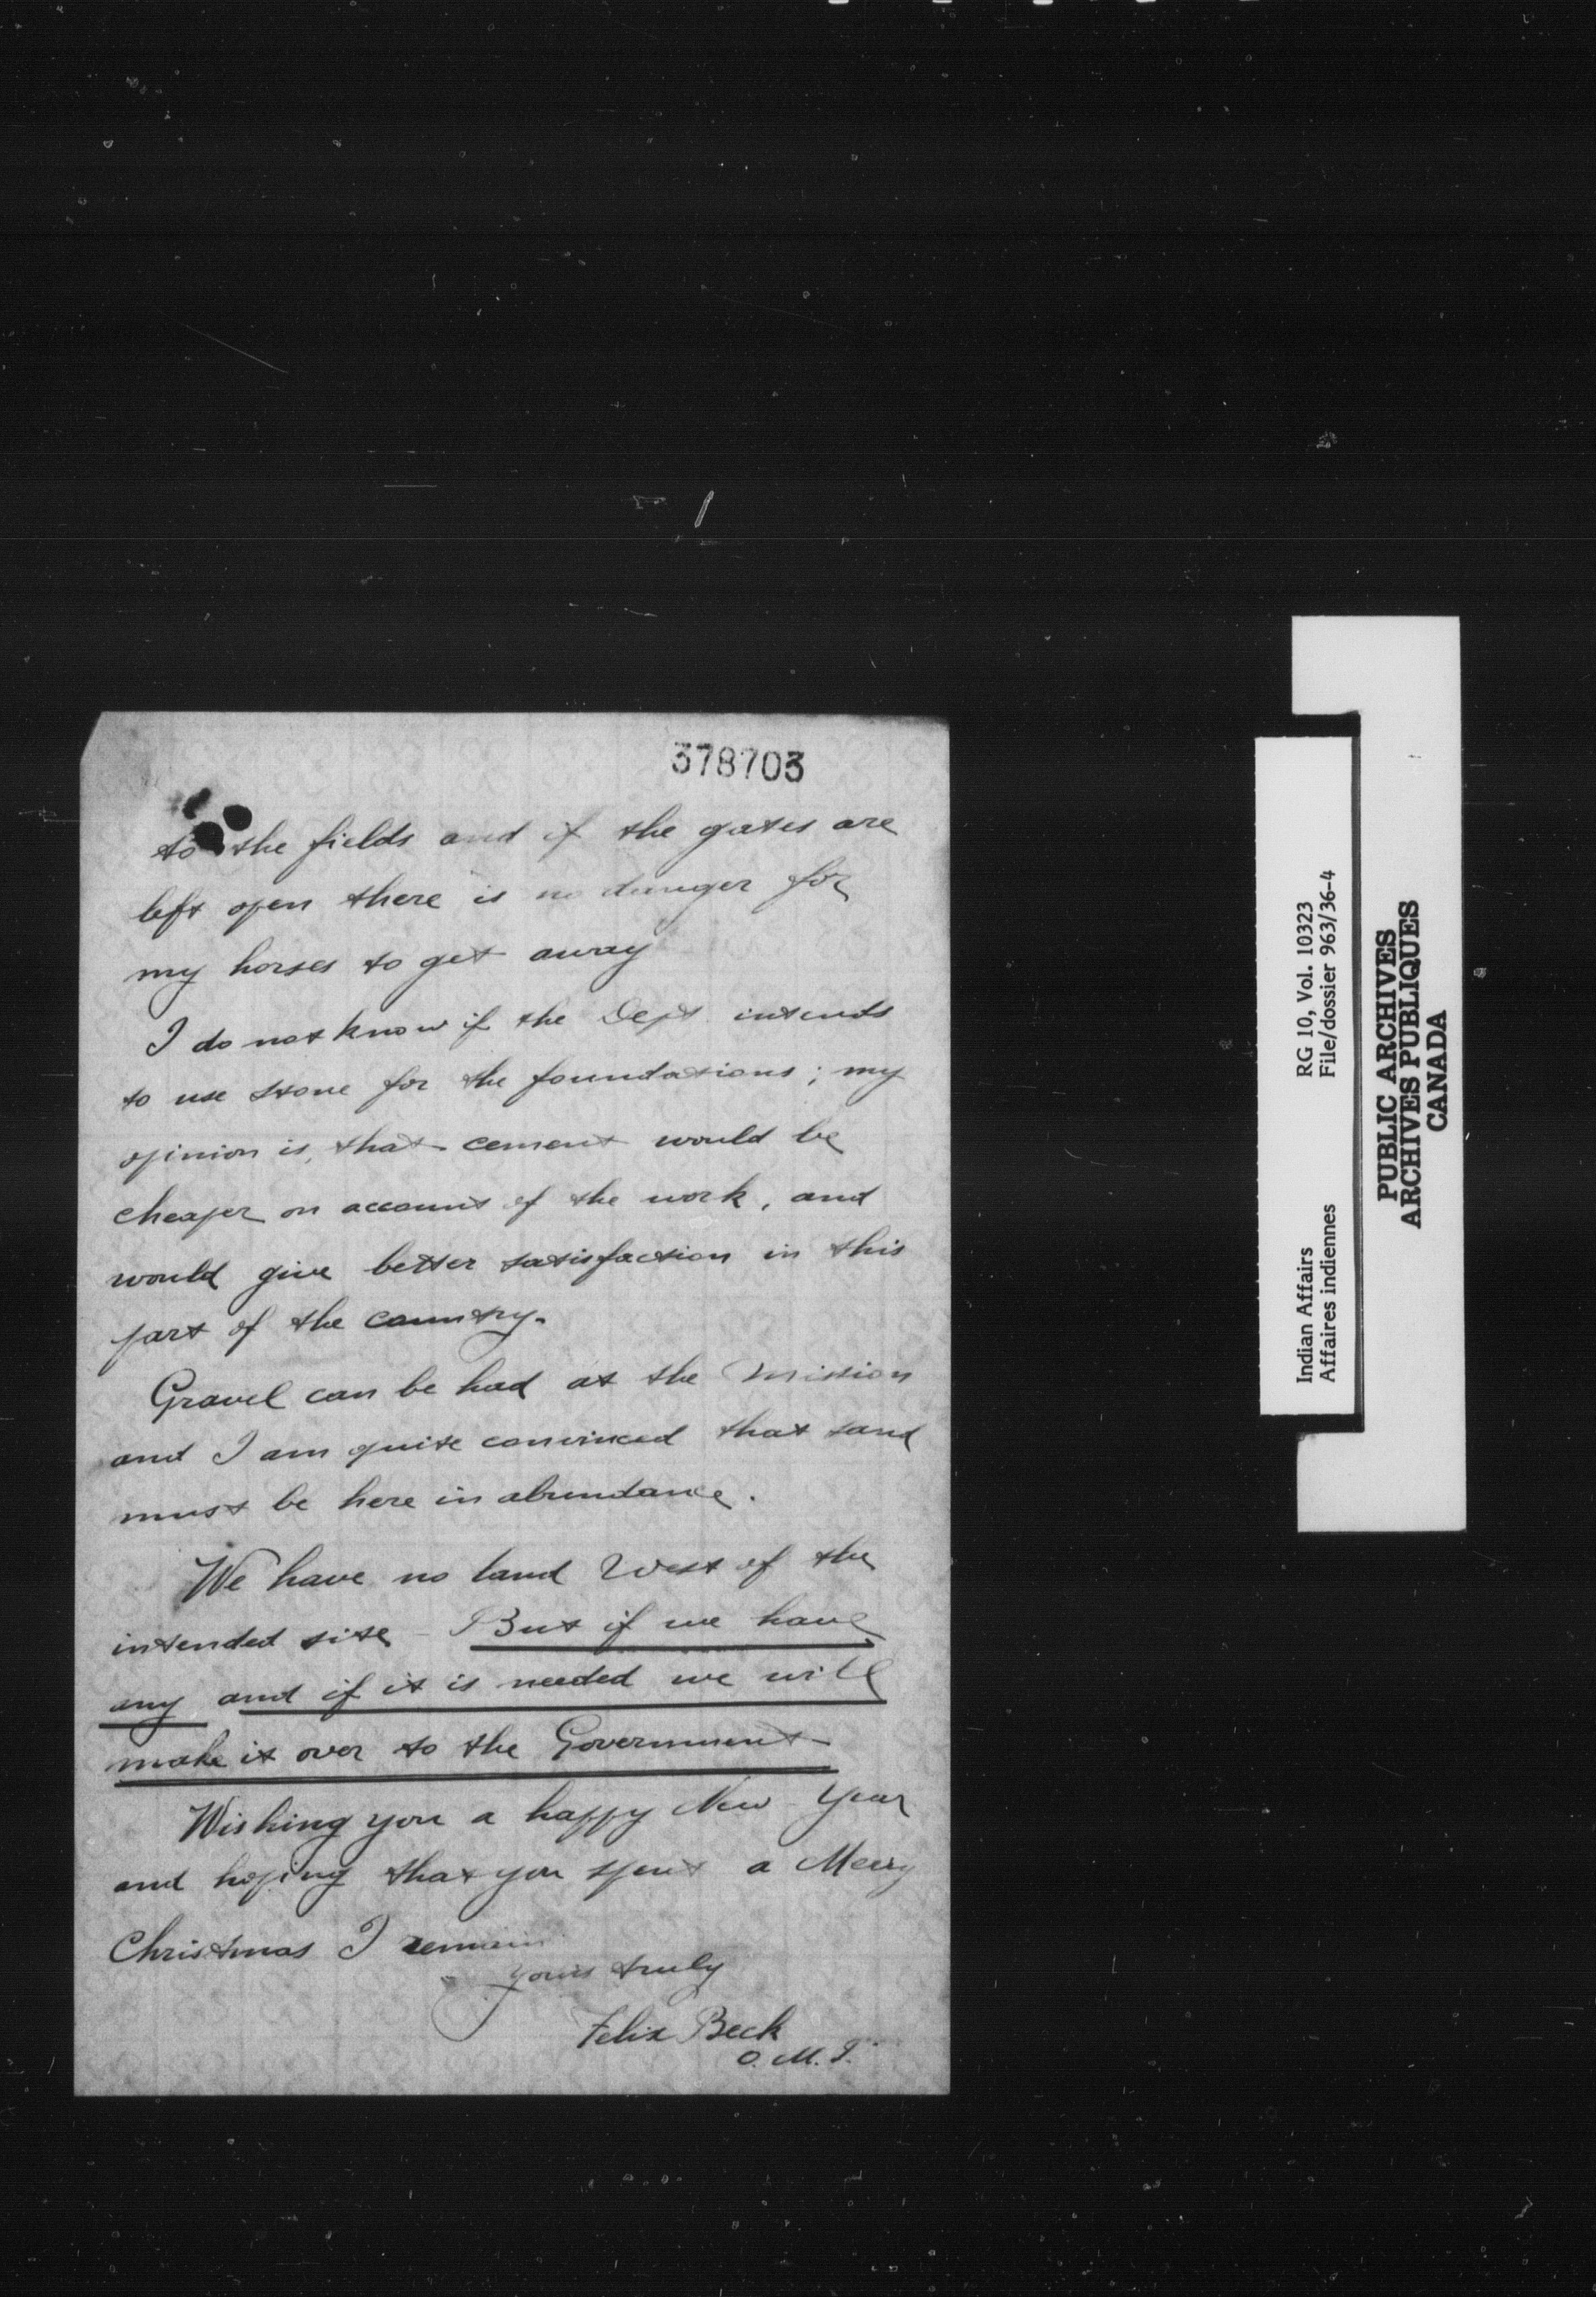 378703
to the fields and if the gates are
left open there is no danger for
my horses to get away
I do not know if the Dept. intends
to use stone for the foundations; my
opinion is, that cement would be
cheaper on account of the work, and
would give better satisfaction in this
part of the country.
Gravel can be had at the Mission
and I am quite convinced that sand
must be here in abundance.
We have no land West of the
intended site - But if we have
any and if it is needed we will
make it over to the Government
Wishing you a happy New Year
and hoping that you spent a Merry
Christmas I remain
yours truly
Felix Beck
O. M. I.
Indian Affairs RG 10, Vol. 10323
Affaires indiennes File/dossier 963/36-4
PUBLIC ARCHIVES
ARCHIVES PUBLIQUES
CANADA